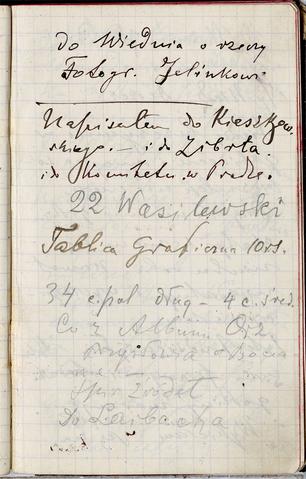 do Wiednia o rzeczy
Fotogr. Jelinkow.
Napisałem do Kieszkow
skiego. — i do Zibrta.
i do Komitetu w Pradze.
22 Wasilewski
Tablica Graficzna 10 rs.
34 c. pol dług — 4 c. śred.
Co z Album
przysłowia
Spis źródeł
Do Laibacha